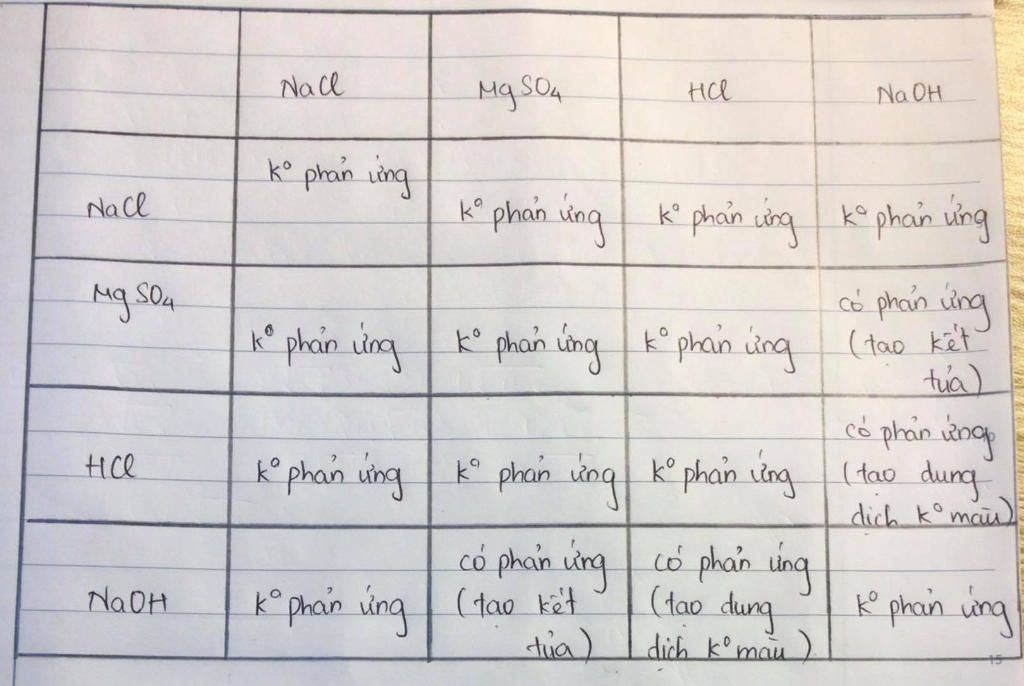 NaCl MgSO₄ HCl NaOH
NaCl k° phản ứng k° phản ứng k° phản ứng k° phản ứng
MgSO₄ k° phản ứng k° phản ứng k° phản ứng có phản ứng
(tạo kết
tủa)
HCl k° phản ứng k° phản ứng k° phản ứng có phản ứng
(tạo dung
dịch k° màu)
NaOH k° phản ứng có phản ứng
(tạo kết
tủa)
có phản ứng
(tạo dung
dịch k° màu)
k° phản ứng
15